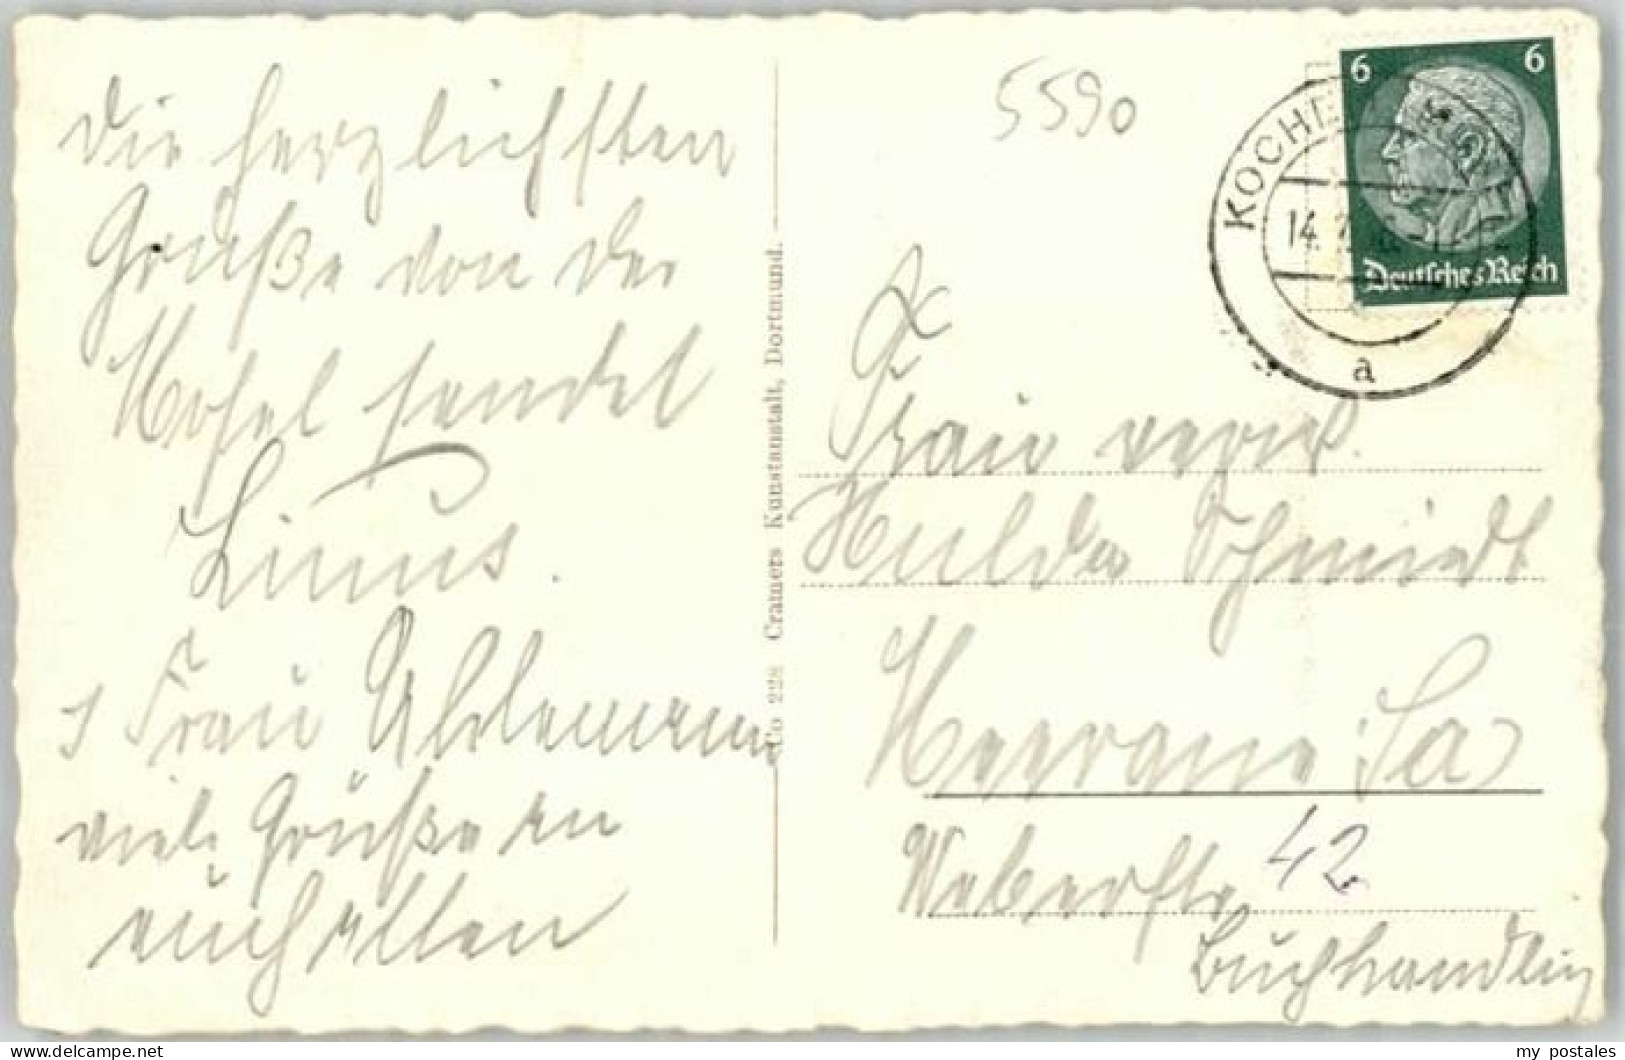 Die herzlichsten
Grüße von der
Mosel sendet
Linus.
Frau Uhlemann
viele Grüße an
euch allen
Co 228 Cramers Kunstanstalt, Dortmund.
5590
6 6
Deutsches Reich
KOCHE
14.
a
Frau verw.
Hulda Schmidt
Meerane Sa
Weberstr 42
Buchhandlung
my postales